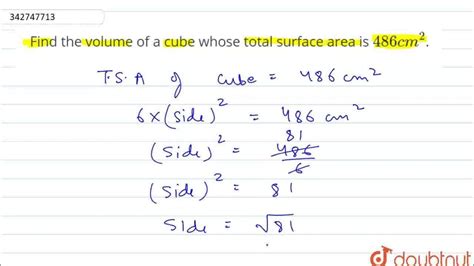 342747713
Find the volume of a cube whose total surface area is 486cm².
T.S.A of cube = 486 cm²
6×(Side)² = 486 cm²
81
(Side)² = 486/6
(Side)² = 81
Side = √81
doubtnut